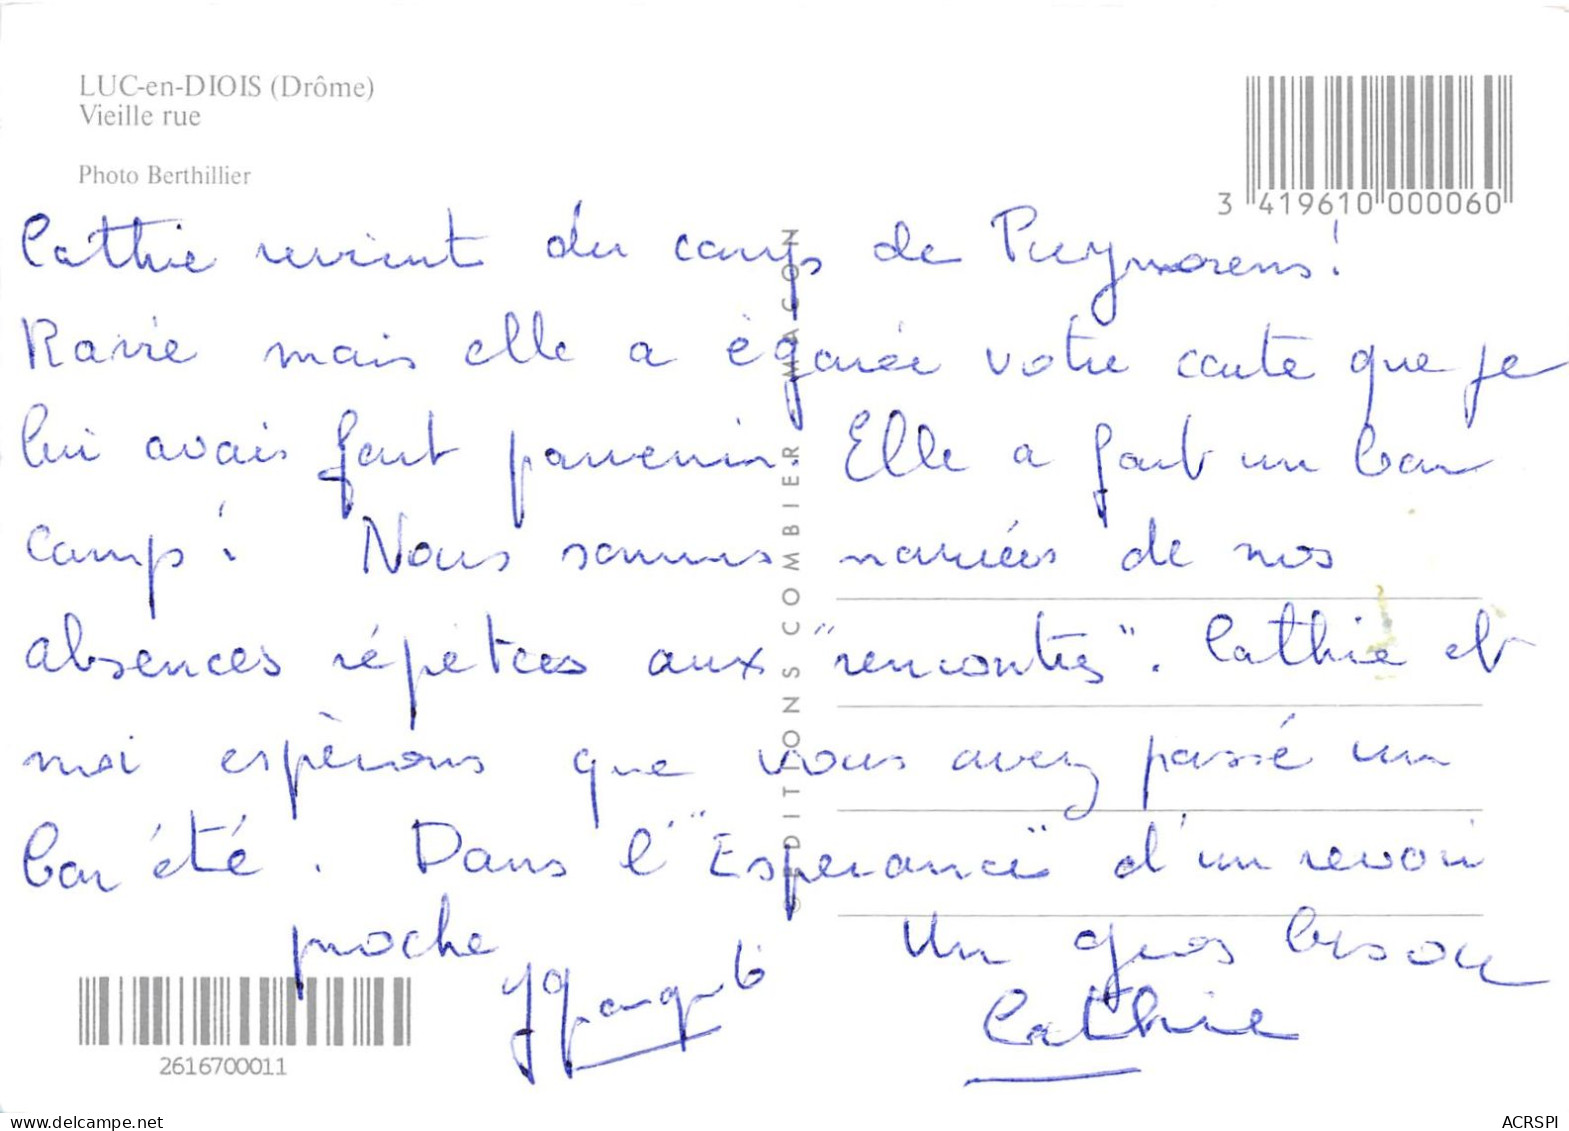 LUC-en-DIOIS (Drôme)
Vieille rue
Photo Berthillier
3 419610 000060
Cathie revient du camp de Puymorens!
Ravie mais elle a égarée votre carte que je
lui avais fait parvenir. Elle a fait un bon
camp! Nous sommes navrées de nos
absences répétées aux "rencontres". Cathie et
moi espèrons que vous avez passé un
bon été. Dans l'"Esperance" d'un revoir
proche Un gros bisou
Cathie
© EDITIONS COMBIER MACON
2616700011
ACRSPI